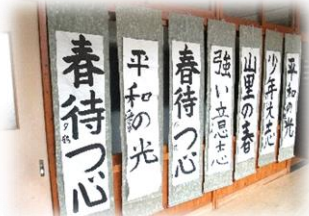 春待つ心
平和の光
春待つ心
強い意志
山里の春
少年大志
平和の光